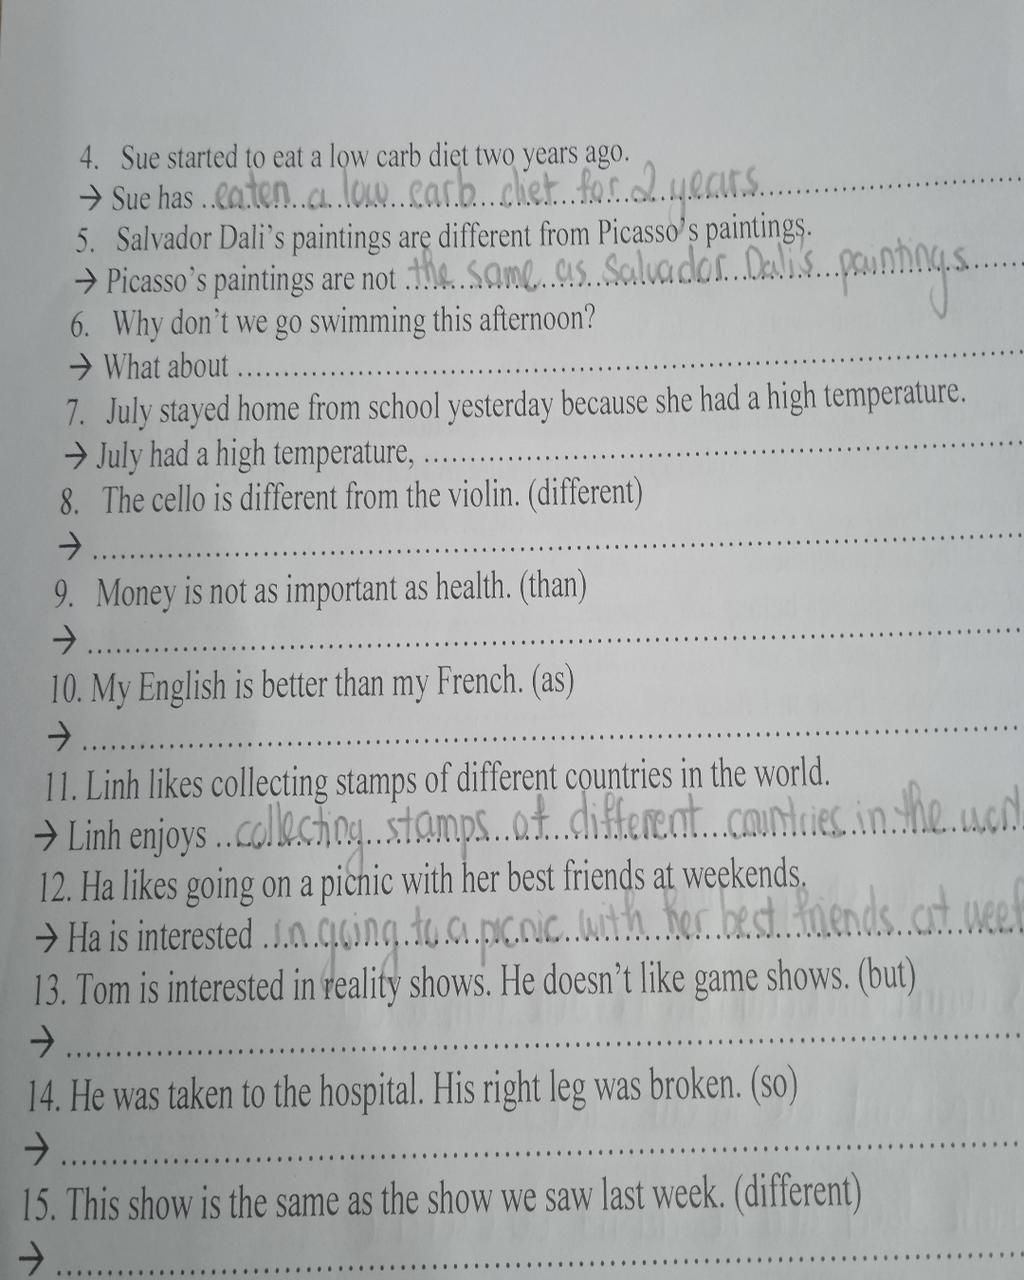 4. Sue started to eat a low carb diet two years ago.
→ Sue has ..eaten a low carb diet for 2 years..........
5. Salvador Dali's paintings are different from Picasso's paintings.
→ Picasso's paintings are not the same as Salvador Dali's paintings......
6. Why don't we go swimming this afternoon?
→ What about ..........
7. July stayed home from school yesterday because she had a high temperature.
→ July had a high temperature, ..........
8. The cello is different from the violin. (different)
→ ..........
9. Money is not as important as health. (than)
→ ..........
10. My English is better than my French. (as)
→ ..........
11. Linh likes collecting stamps of different countries in the world.
→ Linh enjoys ..collecting stamps of different countries in the
12. Ha likes going on a picnic with her best friends at weekends.
→ Ha is interested ..in going to a picnic with her best friends at
13. Tom is interested in reality shows. He doesn't like game shows. (but)
→ ..........
14. He was taken to the hospital. His right leg was broken. (so)
→ ..........
15. This show is the same as the show we saw last week. (different)
→ ..........